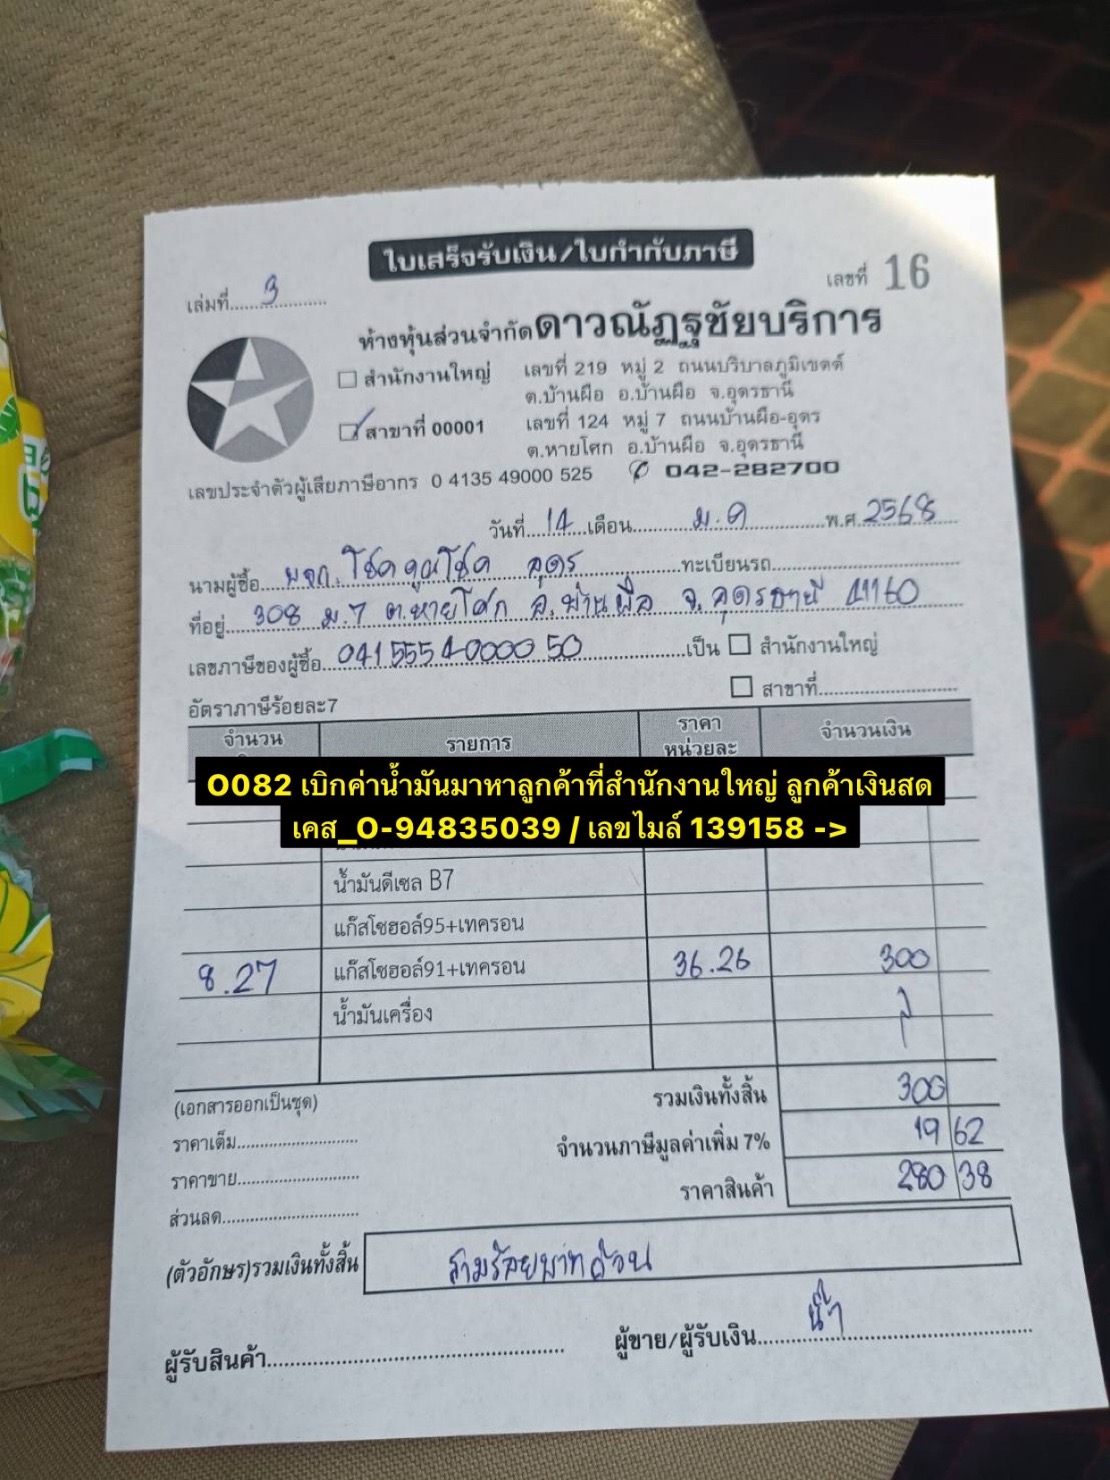 ใบเสร็จรับเงิน/ใบกำกับภาษี
เล่มที่ 3 เลขที่ 16
ห้างหุ้นส่วนจำกัดดาวณัฏฐชัยบริการ
สำนักงานใหญ่ เลขที่ 219 หมู่ 2 ถนนบริบาลภูมิเขตต์
ต.บ้านผือ อ.บ้านผือ จ.อุดรธานี
สาขาที่ 00001 เลขที่ 124 หมู่ 7 ถนนบ้านผือ-อุดร
ต.หายโศก อ.บ้านผือ จ.อุดรธานี
เลขประจำตัวผู้เสียภาษีอากร 0 4135 49000 525 042-282700
วันที่ 14 เดือน ม.ค พ.ศ. 2568
นามผู้ซื้อ หจก. โชคคูณโชค อุดร ทะเบียนรถ
ที่อยู่ 308 ม.7 ต.หายโศก อ.บ้านผือ จ.อุดรธานี 41160
เลขภาษีของผู้ซื้อ 0415554000050 เป็น สำนักงานใหญ่
สาขาที่
อัตราภาษีร้อยละ7
จำนวน รายการ ราคา จำนวนเงิน
หน่วยละ
O082 เบิกค่าน้ำมันมาหาลูกค้าที่สำนักงานใหญ่ ลูกค้าเงินสด
เคส_O-94835039 / เลขไมล์ 139158 ->
น้ำมันดีเซล B7
แก๊สโซฮอล์95+เทครอน
8.27 แก๊สโซฮอล์91+เทครอน 36.26 300
น้ำมันเครื่อง
(เอกสารออกเป็นชุด) รวมเงินทั้งสิ้น 300
ราคาเต็ม จำนวนภาษีมูลค่าเพิ่ม 7% 19 62
ราคาขาย ราคาสินค้า 280 38
ส่วนลด
(ตัวอักษร)รวมเงินทั้งสิ้น สามร้อยบาทถ้วน
ผู้รับสินค้า ผู้ขาย/ผู้รับเงิน